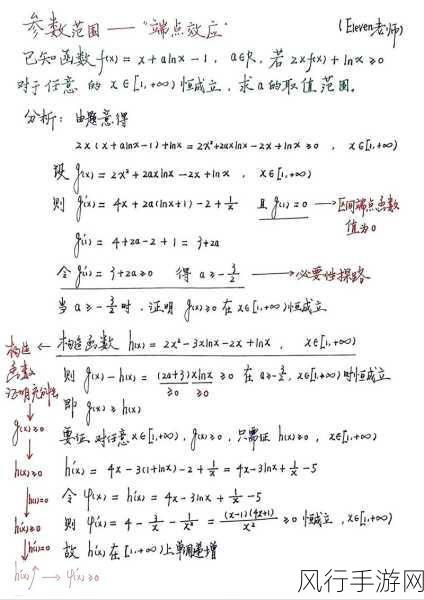 参数范围——“端点效应” (Eleven老师)
已知函数 f(x) = x + alnx - 1, a∈R, 若 2xf(x) + lnx ≥ 0
对于任意的 x∈[1,+∞) 恒成立, 求 a 的取值范围。
分析: 由题意得
2x(x + alnx - 1) + lnx = 2x² + 2axlnx - 2x + lnx ≥ 0, x∈[1,+∞)
设 g(x) = 2x² + 2axlnx - 2x + lnx, x∈[1,+∞)
则 g'(x) = 4x + 2a(lnx+1) - 2 + 1/x 且 g(1) = 0 → 区间端点函数
值为0
g'(1) = 4 + 2a - 2 + 1 = 3 + 2a
令 g'(1) = 3 + 2a ≥ 0 得 a ≥ -3/2 → 必要性探路
当 a ≥ -3/2 时, 证明 g(x) ≥ 0 在 x∈[1,+∞) 恒成立
构造函数 h(x) = 2x² - 3xlnx - 2x + lnx, x∈[1,+∞)
则 g(x) - h(x) = (2a+3)xlnx ≥ 0 在 a ≥ -3/2, x∈[1,+∞) 时恒成立
≥0 ≥0
即 g(x) ≥ h(x)
要证对任意 x∈[1,+∞), g(x) ≥ 0, 只需证 h(x) ≥ 0, x∈[1,+∞)
h'(x) = 4x - 3(1+lnx) - 2 + 1/x = 4x - 3lnx + 1/x - 5
令 φ(x) = h'(x) = 4x - 3lnx + 1/x - 5
则 φ'(x) = 4 - 3/x - 1/x² = (x-1)(4x+1)/x² ≥ 0 恒成立, x∈[1,+∞)
故 h'(x) 在 [1,+∞) 上单调递增
构造
函数
证明充分性
g(x) ≥ 0
h(x) ≥ 0
h(1) = 0
h'(x) ≥ 0
h'(1) = 0
h'(x)↑ → φ'(x) ≥ 0
风行手游网